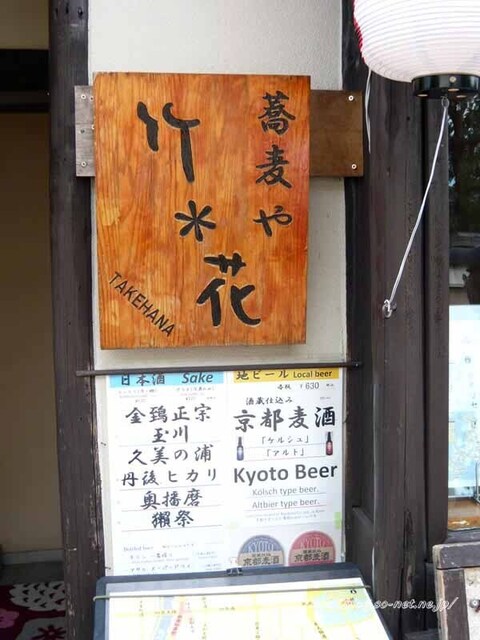 蕎麦や
竹*花
TAKEHANA
日本酒 Sake
金鵄正宗
玉川
久美の浦
丹後ヒカリ
奥播磨
獺祭
Bottled beer
地ビール Local beer
各種 ¥630
酒蔵仕込み
京都麦酒
「ケルシュ」
「アルト」
Kyoto Beer
Kölsch type beer.
Altbier type beer.
京都麦酒
京都麦酒
so-net.ne.jp/